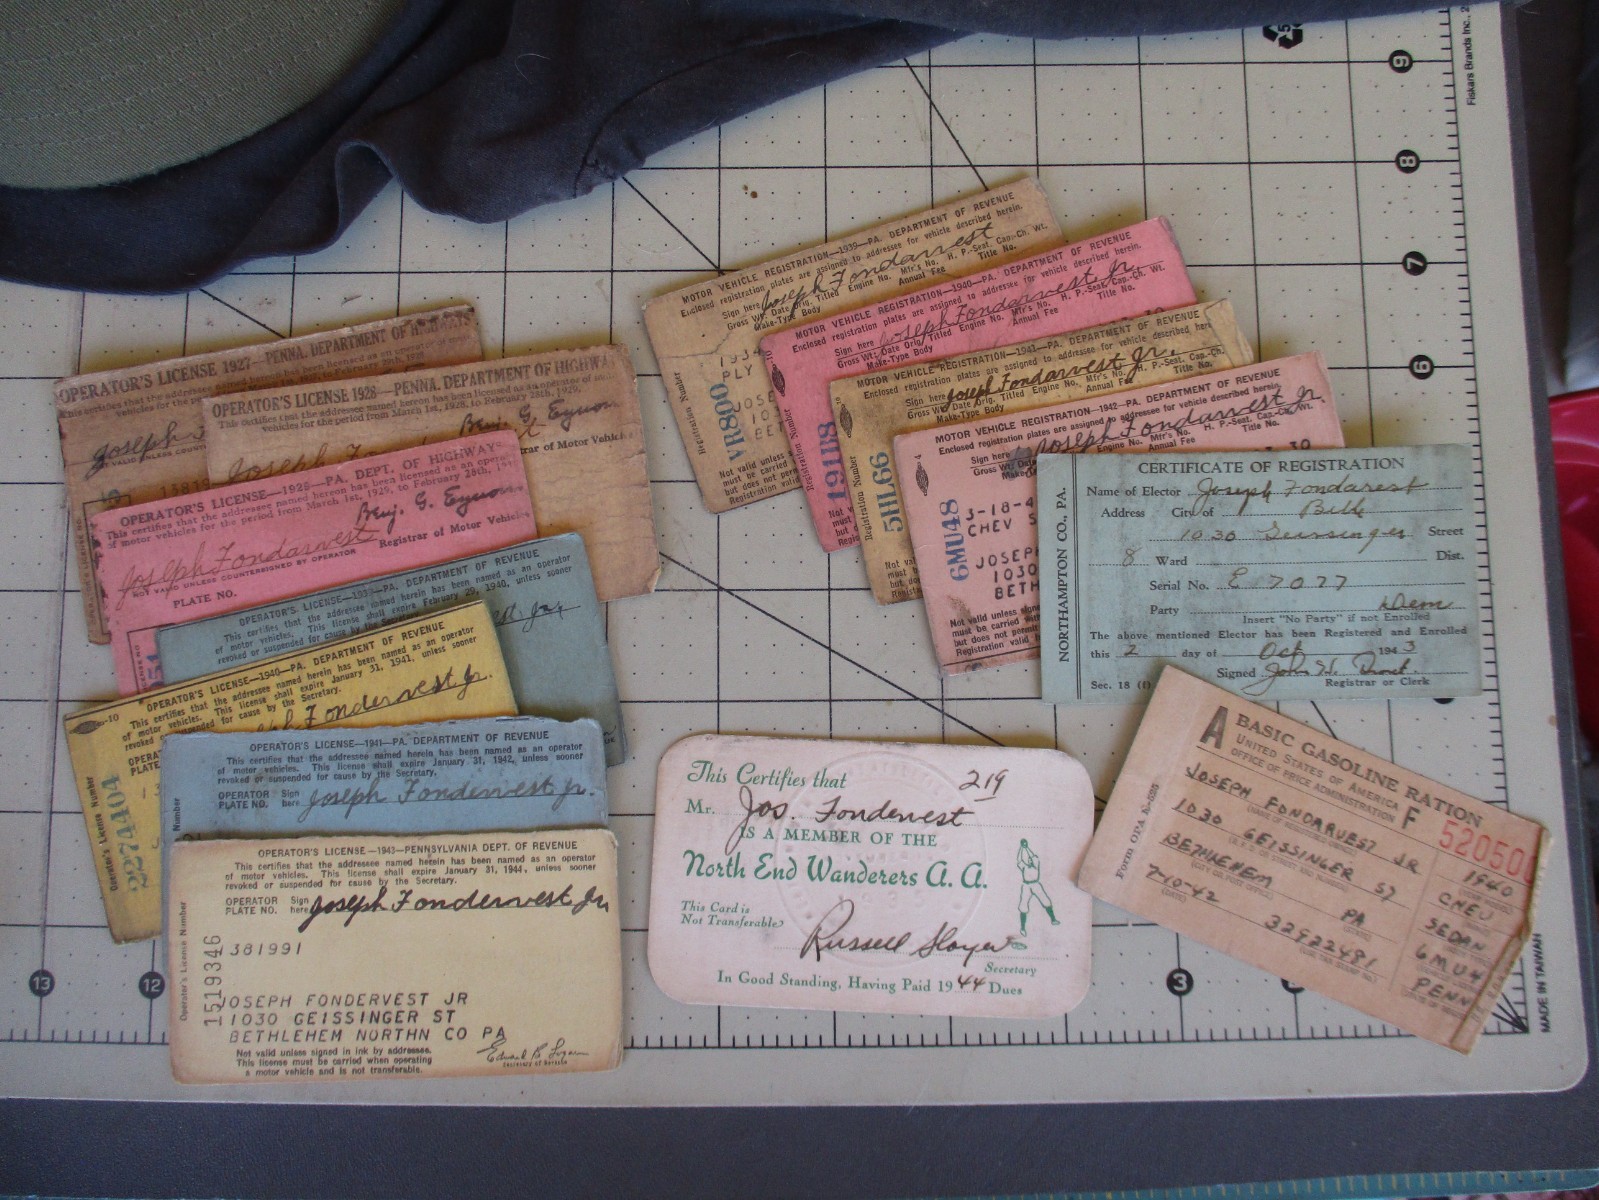 OPERATOR'S LICENSE 1927—PENNA. DEPARTMENT OF HIGHWAYS
This certifies that the addressee named herein has been licensed as an operator of
vehicles for the
Joseph
OPERATOR'S LICENSE 1928—PENNA. DEPARTMENT OF HIGHWAY
This certifies that the addressee named herein has been licensed as an operator of
vehicles for the period from March 1st, 1928, to February 28th, 1929.
Benj. G. Eynon
Joseph
rar of Motor Vehicle
OPERATOR'S LICENSE—1929—PA. DEPT. OF HIGHWAYS
This certifies that the addressee named herein has been licensed as an opera
of motor vehicles for the period from March 1st, 1929, to February 28th,
Benj. G. Eynon
Joseph Fondarvest
Registrar of Motor Vehicles
NOT VALID UNLESS COUNTERSIGNED BY OPERATOR
PLATE NO.
OPERATOR'S LICENSE—1939—PA. DEPARTMENT OF REVENUE
This certifies that the addressee has been named as an operator
of motor vehicles. This license shall expire February 29, 1940, unless sooner
revoked or suspended for cause by the Secretary.
est Jr.
OPERATOR'S LICENSE—1940—PA. DEPARTMENT OF REVENUE
This certifies that the addressee named herein has been named as an operator
of motor vehicles. This license shall expire January 31, 1941, unless sooner
revoked or suspended for cause by the Secretary.
eph Fondervest Jr.
OPERATO
PLATE
Operator's License Number
OPERATOR'S LICENSE—1941—PA. DEPARTMENT OF REVENUE
This certifies that the addressee named herein has been named as an operator
of motor vehicles. This license shall expire January 31, 1942, unless sooner
revoked or suspended for cause by the Secretary.
OPERATOR Sign
PLATE NO. here Joseph Fondervest Jr.
Number
OPERATOR'S LICENSE—1943—PENNSYLVANIA DEPT. OF REVENUE
This certifies that the addressee named herein has been named as an operator
of motor vehicles. This license shall expire January 31, 1944, unless sooner
revoked or suspended for cause by the Secretary.
OPERATOR Sign
PLATE NO. here Joseph Fondervest Jr
381991
Operator's License Number
1519346
JOSEPH FONDERVEST JR
1030 GEISSINGER ST
BETHLEHEM NORTHN CO PA
Not valid unless signed in ink by addressee.
This license must be carried when operating
a motor vehicle and is not transferable.
Secretary of Revenue
MOTOR VEHICLE REGISTRATION—1939—PA. DEPARTMENT OF REVENUE
Enclosed registration plates are assigned to addressee for vehicle described herein.
Sign here Joseph Fondarvest
Gross Wt. Date Orig. Titled Engine No. Mfr's No. H. P.-Seat. Cap.-Ch. Wt.
Make-Type Body Annual Fee Title No.
193
PLY
Registration Number
VR800
JOSE
103
BET
Not valid unless
must be carried
but does not per
Registration valid
MOTOR VEHICLE REGISTRATION—1940—PA. DEPARTMENT OF REVENUE
Enclosed registration plates are assigned to addressee for vehicle described herein.
Sign here Joseph Fondervest Jr.
Gross Wt. Date Orig. Titled Engine No. Mfr's No. H. P.-Seat. Cap.-Ch. Wt.
Make-Type Body Annual Fee Title No.
Registration Number
191U8
MOTOR VEHICLE REGISTRATION—1941—PA. DEPARTMENT OF REVENUE
Enclosed registration plates are assigned to addressee for vehicle described here
Sign here Joseph Fondarvest Jr.
Gross Wt. Date Orig. Titled Engine No. Mfr's No. H. P.-Seat. Cap.-Ch.
Make-Type Body Annual Fee Title No.
Registration Number
5HL66
MOTOR VEHICLE REGISTRATION—1942—PA. DEPARTMENT OF REVENUE
Enclosed registration plates are assigned to addressee for vehicle described herein.
Sign here Joseph Fondarvest Jr.
Gross Wt. Engine No. Mfr's No. H. P.-Seat. Cap.-Ch. Wt.
Annual Fee Title No.
30
6MU48
3-18-4
CHEV S
JOSEPH
1030
BETH
Not valid unless signed
must be carried with
but does not permit
Registration valid
CERTIFICATE OF REGISTRATION
Name of Elector Joseph Fondarest
Address City of Beth
1030 Geissinger Street
8 Ward Dist.
Serial No. E 7077
Party Dem
Insert "No Party" if not Enrolled
The above mentioned Elector has been Registered and Enrolled
this 2 day of Oct 1943
Signed John H.
Sec. 18 (f) Registrar or Clerk
NORTHAMPTON CO., PA.
A BASIC GASOLINE RATION
UNITED STATES OF AMERICA
OFFICE OF PRICE ADMINISTRATION F
52050
JOSEPH FONDARVEST JR
1030 GEISSINGER ST
BETHLEHEM PA
7-10-42 32922481
1940
CHEV
SEDAN
6MU4
PENN
Form OPA R-525
This Certifies that 219
Mr. Jos. Fondervest
IS A MEMBER OF THE
North End Wanderers A. A.
This Card is
Not Transferable
Russell
Secretary
In Good Standing, Having Paid 1944 Dues
9
8
7
6
13
12
3
Fiskars Brands Inc., 2
MADE IN TAIWAN